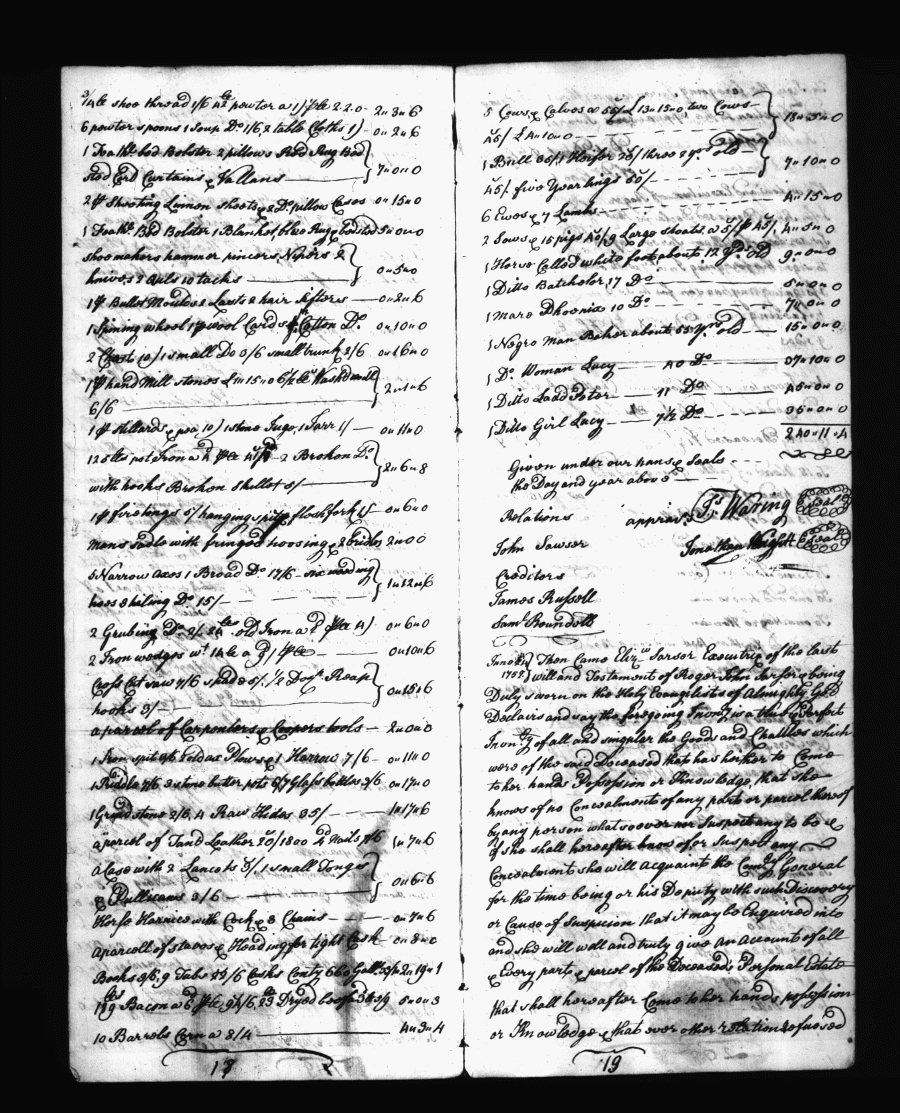 3/4 lb shoe thread 1/6 42 lb pewter a 1/ p lb 2.2.0 - 2 " 3 " 6
6 pewter spoons 1 Soup Do 1/6, 2 table Cloths 1/ - 0 " 2 " 6
1 Feathr bed Bolster 2 pillows Rug Bed
sted Cord Curtains & Vallans — 7 " 0 " 0
2 pr Sheeting Linnen sheets & 2 Do pillow Cases 0 " 15 " 0
1 Feathr Bed Bolster 1 Blanket, blue Rug & bedsted 5 " 0 " 0
shoemakers hammer pincers Nipers 2
knives 2 Awls 10 tacks — 0 " 5 " 0
1 pr Bullet Moulds 2 Lasts 2 hair Sifters — 0 " 2 " 6
1 Spining wheel 1 pr wool Cards 1 pr Cotton Do. 0 " 10 " 0
2 Chest 10/ 1 small Do 3/6 small trunk 2/6 0 " 16 " 0
1 pr hand Mill stones £1 " 15 " 0 Washd
6/6 — 2 " 1 " 6
1 pr stillards & pea 10/ 1 stone Jugg, 1 Jarr 1/ — 0 " 11 " 0
125 lbs pot Iron a 4d p lb 2 Broken Do
with hooks Broken skillet 5/ — 2 " 6 " 8
1 pr fire tongs 5/ hangings flesh fork 1/ — 0 " 6 " 0
mans sadle with fringed hoosing & 2 bridles 2 " 0 " 0
5 Narrow axes 1 Broad Do 17/6 - six weeding
hoes 3 hiling Do 15/ — 1 " 12 " 6
2 Grubing Do 2/ 24 lbs old Iron a 2 p lb 4/ 0 " 6 " 0
2 Iron wedges wt 14 lb a 9/ p lb — 0 " 10 " 6
Cross Cut saw 7/6 spade 5/. 1/2 Dozn Reap
hooks 3/ — 0 " 15 " 6
a parcel of Carpenters & Coopers tools — 2 " 0 " 0
1 Iron spit 2 old ax Plows & 1 Harrow 7/6 — 0 " 11 " 0
1 Riddle 7/6 3 stone buter pots 6/ 7 Glass bottles 3/6 0 " 17 " 0
1 Grind stone 2/6, 4 Raw Hides 35/ — 1 " 17 " 6
a parcel of Tand Leather 20/ 1800 4d Nails 7/6 1 " 7 " 6
a Case with 2 Lancets 3/, 1 small Tongs
& Pullicans 3/6 — 0 " 6 " 6
Horse Harnice with Cork & 8 Chains — 0 " 7 " 6
a parcell of staves & Heading for tight Cask 0 " 8 " 0
Books 3/6, 9 Tubs 33/6 Casks Conty 660 Gall: 2 " 19 " 1
119 lbs Bacon a 6 p lb Dryed beef 8 " 0 " 3
10 Barrels Corn a 8/4 — 4 " 3 " 4
18
5 Cows & Calves a 55/ £13 " 15 " 0, two Cows
45/ £4 " 10 " 0 — 18 " 5 " 0
1 Bull 35/ 1 Heifer 25/ three 2 yrs old —
45/. five Yearlings 50/ — 7 " 10 " 0
6 Ewes & 7 Lambs — 4 " 15 " 0
2 Sows & 15 pigs 40/ 9 Large shoats a 5/ p 45/. 4 " 5 " 0
1 Horse Called white foot about 12 yrs old 9 " 0 " 0
1 Ditto Batchelor, 17 Do — 5 " 0 " 0
1 Mare Phoenix 10 Do — 7 " 0 " 0
1 Negro Man Baker about 55 yrs old — 15 " 0 " 0
1 Do Woman Lucy — 40 Do — 37 " 10 " 0
1 Ditto Ladd Peter — 11 Do — 45 " 0 " 0
1 Ditto Girl Lucy — 7 1/2 Do — 35 " 0 " 0
240 " 11 " 4
Given under our hans & Seals
the Day and year above
Relations appraisrs Js Waring (seal)
John Sawser Jonathan Wright (seal)
Creditors
James Russell
Saml Roundell
June 1752 } Then Came Elizth Sarser Executrix of the last
will and Testament of Roger John Sarser & being
Duly sworn on the Holy Evangelists of Almighty God
Declairs and say the foregoing Invony is a true & Perfect
Invony of all and singular the Goods and Chattles which
were of the said Deceased that has hether to Come
to her hands Possession or Knowledge, that she
knows of no Concealment of any part or parcel thereof
by any person whatsoever nor Suspects any to be &
if she shall hereafter know of or Suspect any
Concealment she will acquaint the Comry General
for the time being or his Deputy with such Discovery
or Cause of Suspicion that it may be Enquired into
and she will well and truly give an Account of all
& Every part & parcel of the Deceased's Personal Estate
that shall hereafter Come to her hands, possession
or Knowledge & that ever other relation refuesed
19